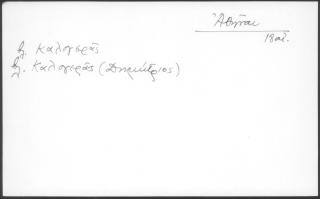 Ἀθῆναι
18αι.
βλ. Καλογερᾶς
βλ. Καλογερᾶς (Δημήτριος)